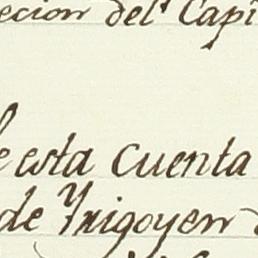 ecion del Capi
e esta Cuenta
de Yrigoyen